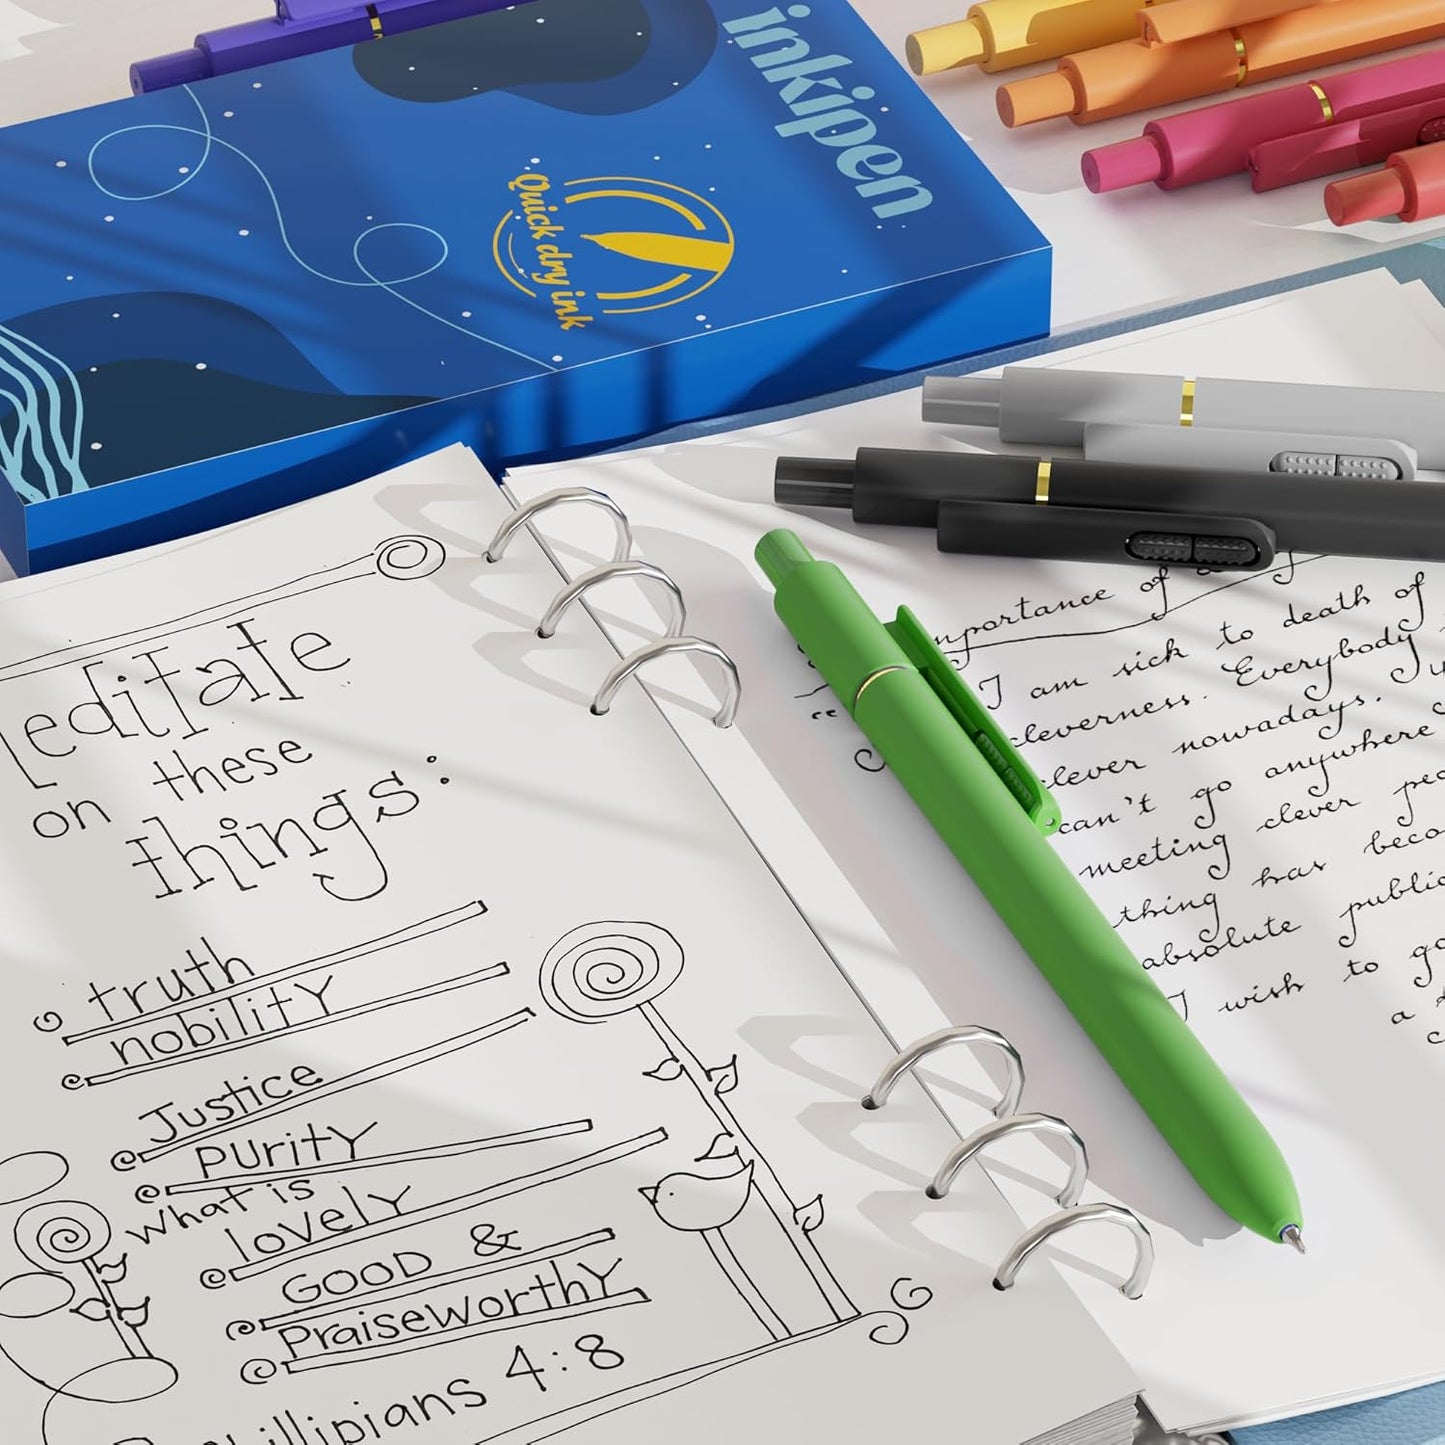 inkipen
Quick dry ink
editate
on these
things:
truth
nobility
Justice
Purity
what is
lovely
GOOD &
Praiseworthy
4:8
I am sick to death of
cleverness. Everybody
clever nowadays.
can't go anywhere
meeting clever
thing has
absolute public
I wish to go
a